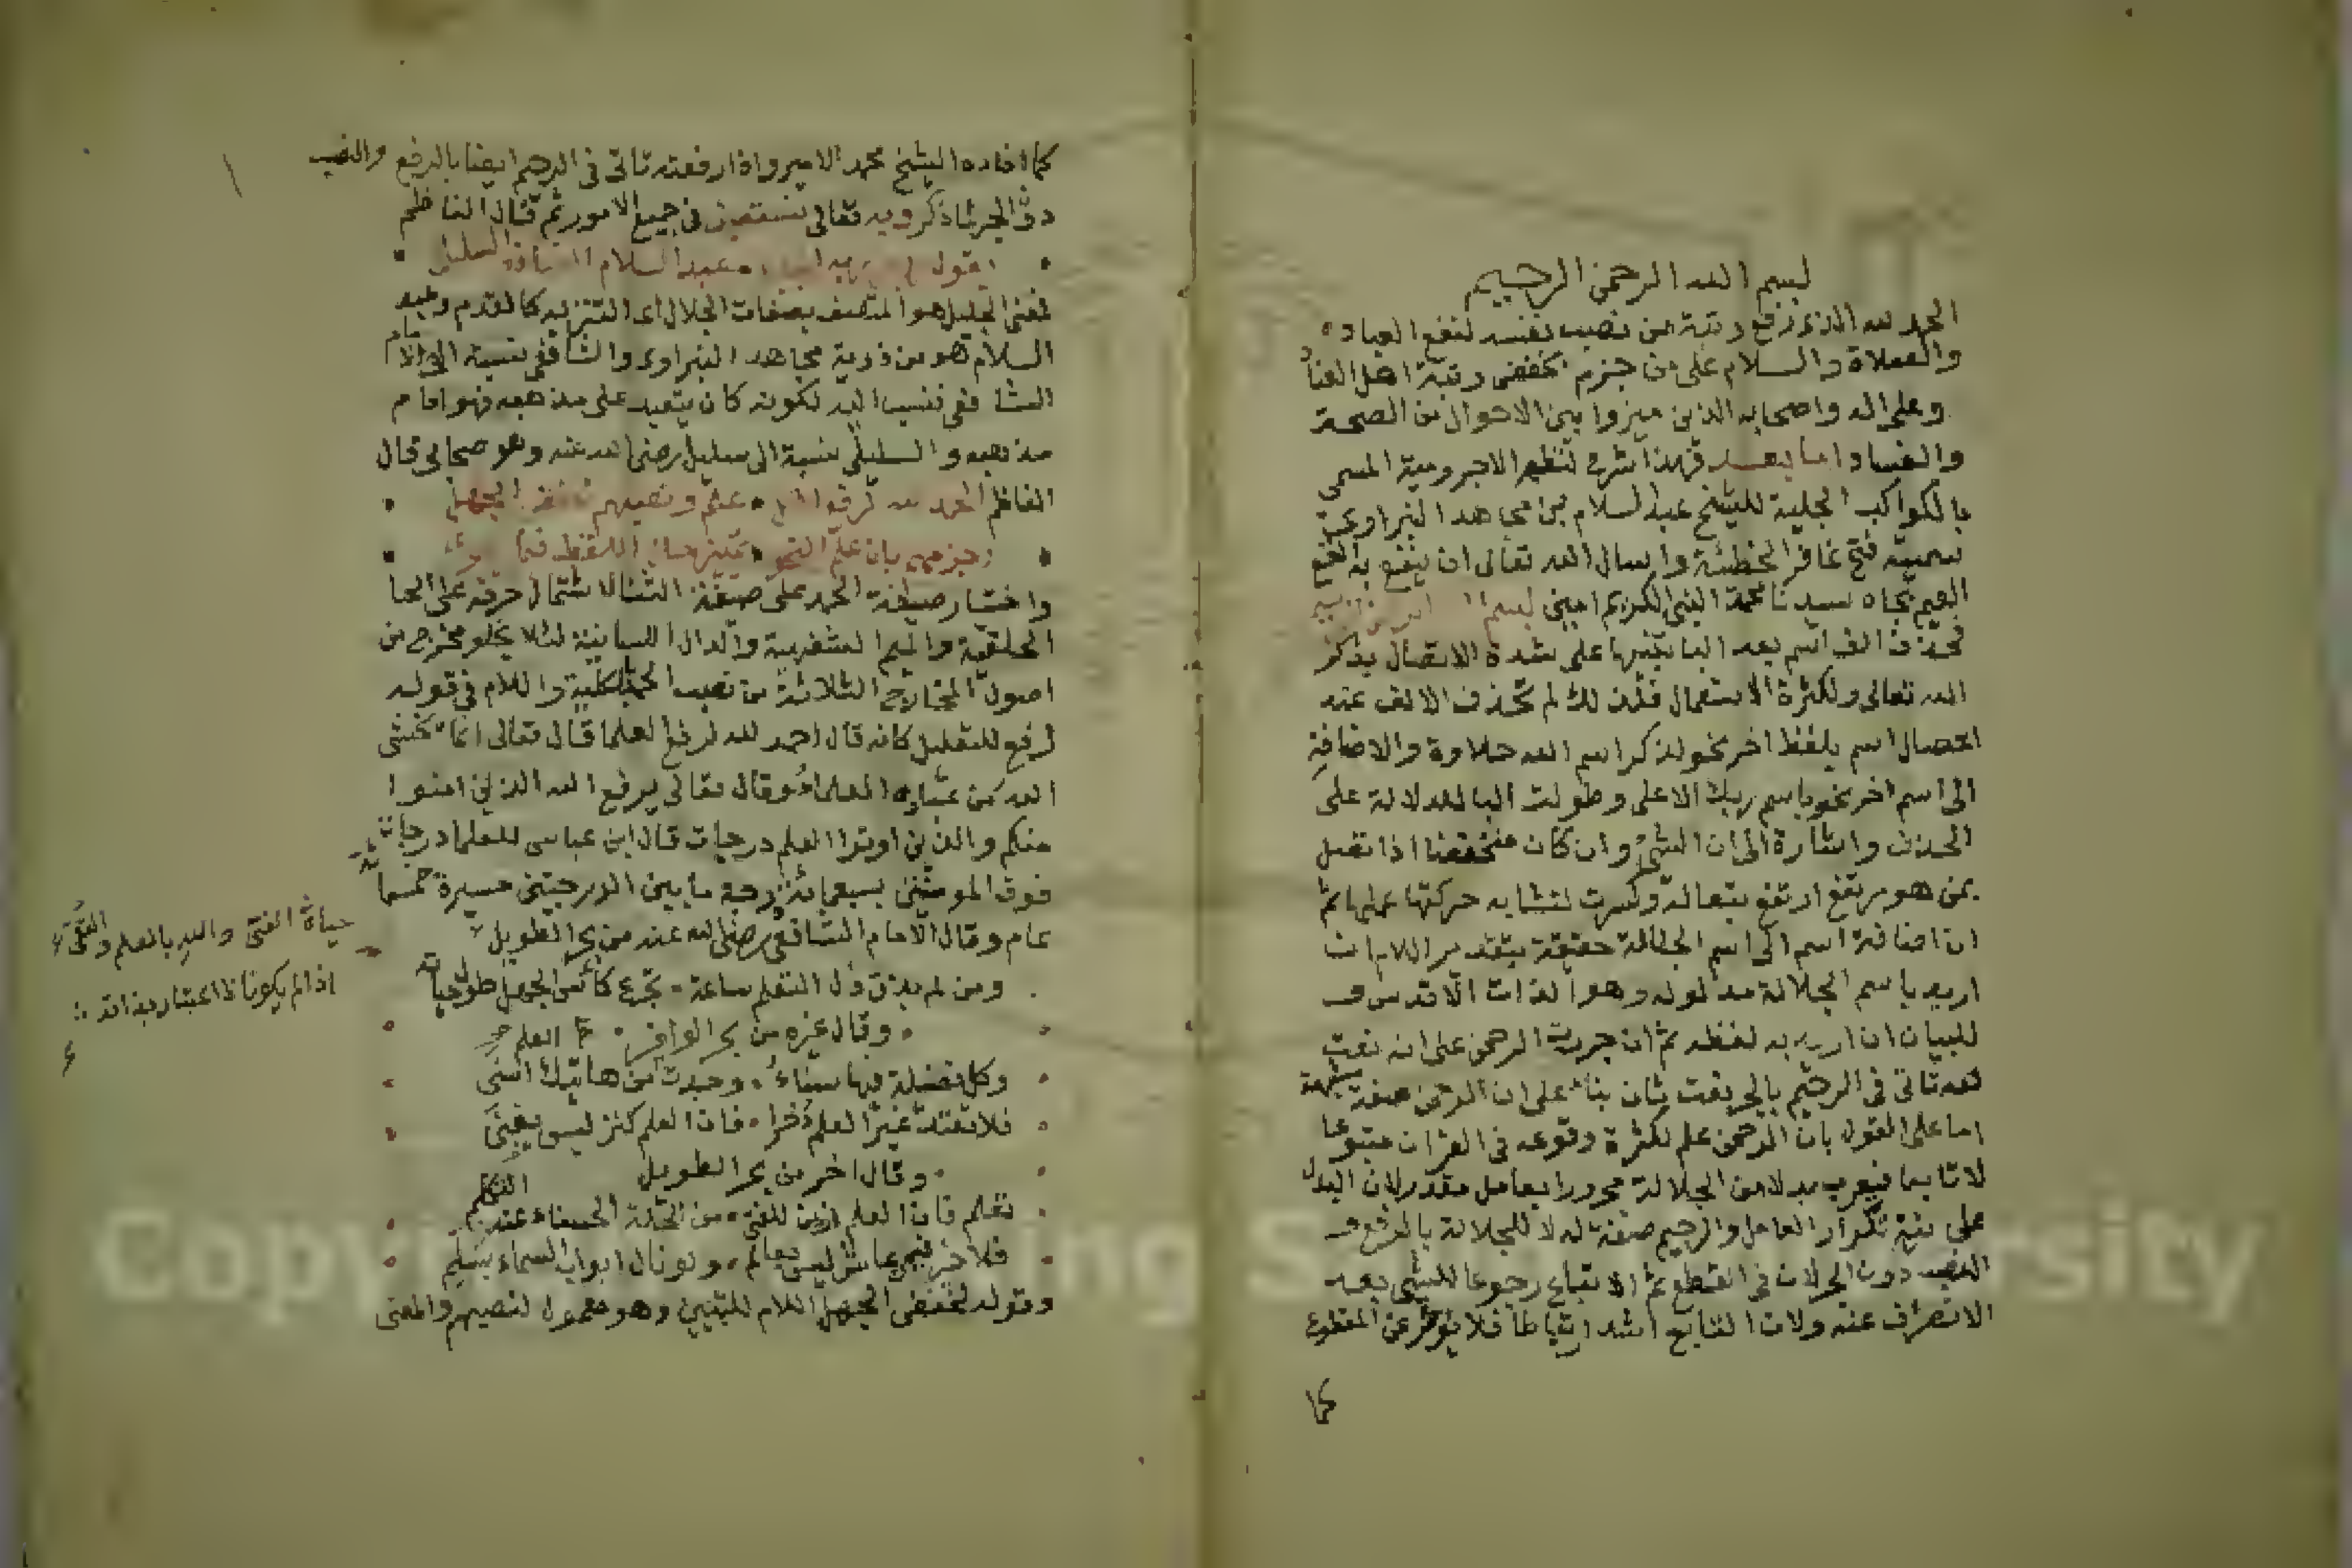 بسم الله الرحمن الرحيم
الحمد لله الذي رفع رتبة من نصب نفسه لنفع العباد
والصلاة والسلام على من جزم بخفض رتبة اهل العناد
وعلى اله واصحابه الذين ميزوا بين الاحوال من الصحة
والفساد اما بعد فهذا شرح لنظم الاجرومية المسمى
بالكواكب الجلية للشيخ عبد السلام بن مجاهد النبراوي
سميته فتح غافر الخطية واسال الله تعالى ان ينفع به النفع
العميم بجاه سيدنا محمد النبي الكريم امين بسم
فحذف الف اسم بعد البا تنبيها على شدة الاتصال بذكر
الله تعالى ولكثرة الاستعمال فلذلك لم تحذف الالف عند
اتصال اسم بلفظ اخر نحو لذكر اسم الله حلاوة والاضافة
الى اسم اخر نحو باسم ربك الاعلى وطولت البا للدلالة على
الحذف واشارة الى ان الشي وان كان منخفضا اذا اتصل
بمن هو مرتفع ارتفع بتعاله وكسرت لتشابه حركتها عملها ثم
ان اضافة اسم الى اسم الجلالة حقيقة بتقدير اللام ان
اريد باسم الجلالة مدلوله وهو الذات الاقدس و
للبيان ان اريد به لفظه ثم ان جررت الرحمن على انه نعت
لله تاتى في الرحيم بالجر نعت ثان بناء على ان الرحمن صفة مشبهة
اما على القول بان الرحمن علم لكثرة وقوعه في القران متبوعا
لا تابعا فيعرب بدلا من الجلالة مجرورا بعامل مقدر لان البدل
على نية تكرار العامل والرحيم صفة له لا للجلالة بالرفع و
النصب دون الجر لان في القطع ثم الاتباع رجوعا للشي بعد
الانصراف عنه ولان التابع اشد ارتباطا فلا يؤخر عن المقطوع
كما
كما افاده الشيخ محمد الامير واذا رفعته تاتى في الرحيم ايضا بالرفع والنصب
دون الجر لما ذكر وبه تعالى نستعين في جميع الامور ثم قال الناظم
يقول عبد السلام السليلي
فمعنى الجليل هو المتصف بصفات الجلال اى التنزيه كالقدم وعبد
السلام هو من ذرية مجاهد النبراوي والشافعي نسبة الى الامام
الشافعي فنسب اليه لكونه كان يتعبد على مذهبه فهو امام
مذهبه والسليلي نسبة الى سليل رضي الله عنه وهو صحابي قال
الناظم الحمد لله لرفع علم ونصبهم لخفض الجهل
وجزمهم بان علم النحو
واختار صيغة الحمد على صيغة الثنا لاشتمال حرفه على الحا
الحلقية والميم الشفهية والدال اللسانية لئلا يخلو مخرج من
اصول المخارج الثلاثة من نصب واللام في قوله
لرفع للتعليل كانه قال احمد لله لرفع العلما قال تعالى انما يخشى
الله من عباده العلماء وقال تعالى يرفع الله الذين امنوا
منكم والذين اوتوا العلم درجات قال ابن عباس للعلما درجات
فوق المومنين بسبعمائة درجة ما بين الدرجتين مسيرة خمسمائة
عام وقال الامام الشافعي رضي الله عنه من بحر الطويل
ومن لم يذق ذل التعلم ساعة تجرع كأس الجهل طول حياته
وقال غيره من بحر الوافر
وكل فضيلة فيها سناء وجدت العلم من هاتيك اسنى
فلا تعتد غير العلم ذخرا فان العلم كنز ليس يفنى
وقال اخر من بحر الطويل
تعلم فان العلم ازين للفتى من الحلة الحسناء عند التكلم
فلا خير فيمن عاش ليس بعالم ولو نال ابواب السماء بسلم
وقوله لخفض الجهل اللام للتبيين وهو معمول لنصبهم والمعنى
حياة الفتى والله بالعلم والتقى
اذا لم يكونا لا اعتبار بذاته